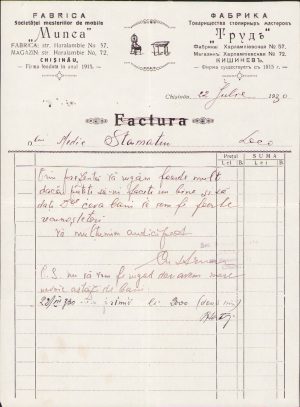 FABRICA
Societăței meșterilor de mobile
"Munca"
FABRICA: str. Haralambie No 57.
MAGAZIN: str. Haralambie No 72.
CHIȘINĂU,
Firma fondată în anul 1915.
ФАБРИКА
Товарищества столярных мастеров
"Трудъ"
Фабрика: Харлампиевская № 57.
Магазин: Харлампиевская № 72.
КИШИНЕВЪ.
Фирма существует с 1915 г.
Chișinău, 22 Iulie 1930
Factura
Stamatiu
Prețul SUMA
Lei B. Lei B.
Prin prezenta vă rugăm foarte mult
dacă puteți să-ni faceți un bine și să
dați ceva bani vă vom fi foarte
recunoscători
Vă mulțumim
Cu stima
P.S. nu vă vom fi rugat dar avem mare
nevoie astăzi de bani
primit lei 2000